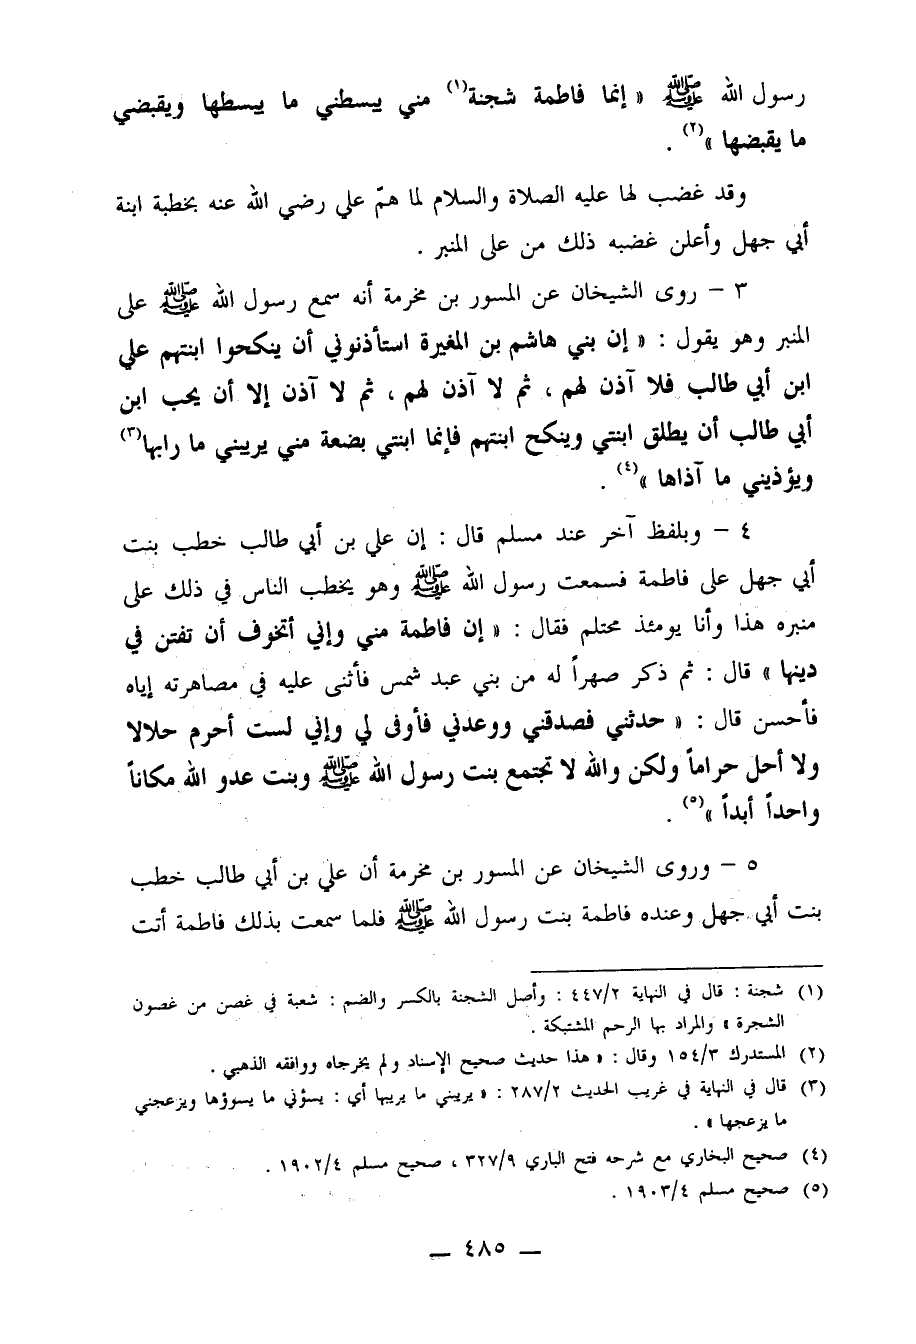 رسول الله ﷺ « إنما فاطمة شجنة(١) مني يبسطني ما يبسطها ويقبضي
ما يقبضها »(٢) .
وقد غضب لها عليه الصلاة والسلام لما همّ علي رضي الله عنه بخطبة ابنة
أبي جهل وأعلن غضبه ذلك من على المنبر .
٣ – روى الشيخان عن المسور بن مخرمة أنه سمع رسول الله ﷺ على
المنبر وهو يقول : « إن بني هاشم بن المغيرة استأذنوني أن ينكحوا ابنتهم علي
ابن أبي طالب فلا آذن لهم ، ثم لا آذن لهم ، ثم لا آذن إلا أن يحب ابن
أبي طالب أن يطلق ابنتي وينكح ابنتهم فإنما ابنتي بضعة مني يريبني ما رابها(٣)
ويؤذيني ما آذاها »(٤) .
٤ – وبلفظ آخر عند مسلم قال : إن علي بن أبي طالب خطب بنت
أبي جهل على فاطمة فسمعت رسول الله ﷺ وهو يخطب الناس في ذلك على
منبره هذا وأنا يومئذ محتلم فقال : « إن فاطمة مني وإني أتخوف أن تفتن في
دينها » قال : ثم ذكر صهراً له من بني عبد شمس فأثنى عليه في مصاهرته إياه
فأحسن قال : « حدثني فصدقني ووعدني فأوفى لي وإني لست أحرم حلالا
ولا أحل حراماً ولكن والله لا تجتمع بنت رسول الله ﷺ وبنت عدو الله مكاناً
واحداً أبداً »(٥) .
٥ – وروى الشيخان عن المسور بن مخرمة أن علي بن أبي طالب خطب
بنت أبي جهل وعنده فاطمة بنت رسول الله ﷺ فلما سمعت بذلك فاطمة أتت
(١) شجنة : قال في النهاية ٤٤٧/٢ : وأصل الشجنة بالكسر والضم : شعبة في غصن من غصون
الشجرة » والمراد بها الرحم المشتبكة .
(٢) المستدرك ١٥٤/٣ وقال : « هذا حديث صحيح الإسناد ولم يخرجاه ووافقه الذهبي .
(٣) قال في النهاية في غريب الحديث ٢٨٧/٢ : « يريبني ما يريبها أي : يسؤني ما يسوؤها ويزعجني
ما يزعجها » .
(٤) صحيح البخاري مع شرحه فتح الباري ٣٢٧/٩ ، صحيح مسلم ١٩٠٢/٤ .
(٥) صحيح مسلم ١٩٠٣/٤ .
— ٤٨٥ —